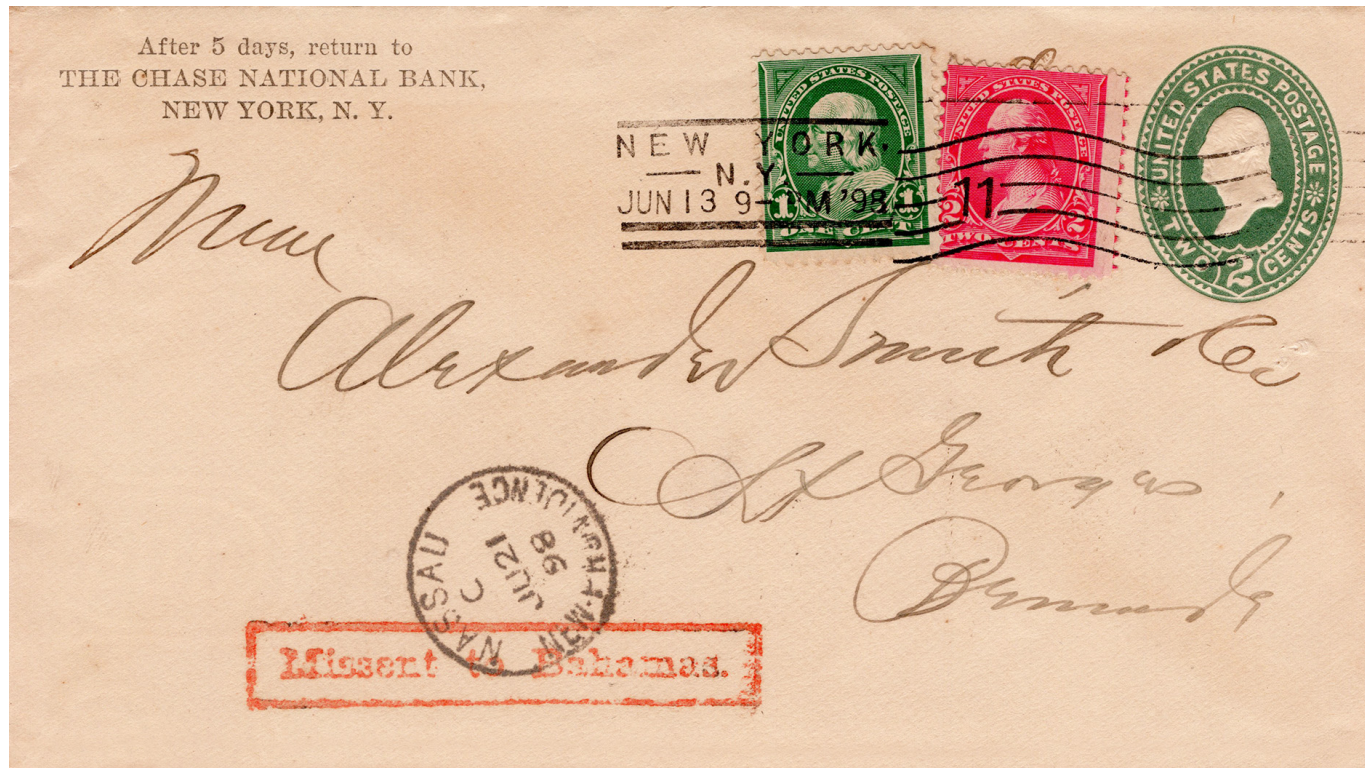 After 5 days, return to
THE CHASE NATIONAL BANK,
NEW YORK, N. Y.
UNITED STATES POSTAGE
1 1
ONE CENT
UNITED STATES POSTAGE
2 2
TWO CENTS
UNITED STATES POSTAGE
TWO 2 CENTS
NEW YORK,
N.Y.
JUN 13 9- M '98
11
Alexander Smith & Co
St Georges,
Bermuda
NASSAU NEW-PROVIDENCE
C
JU 21
98
Missent to Bahamas.